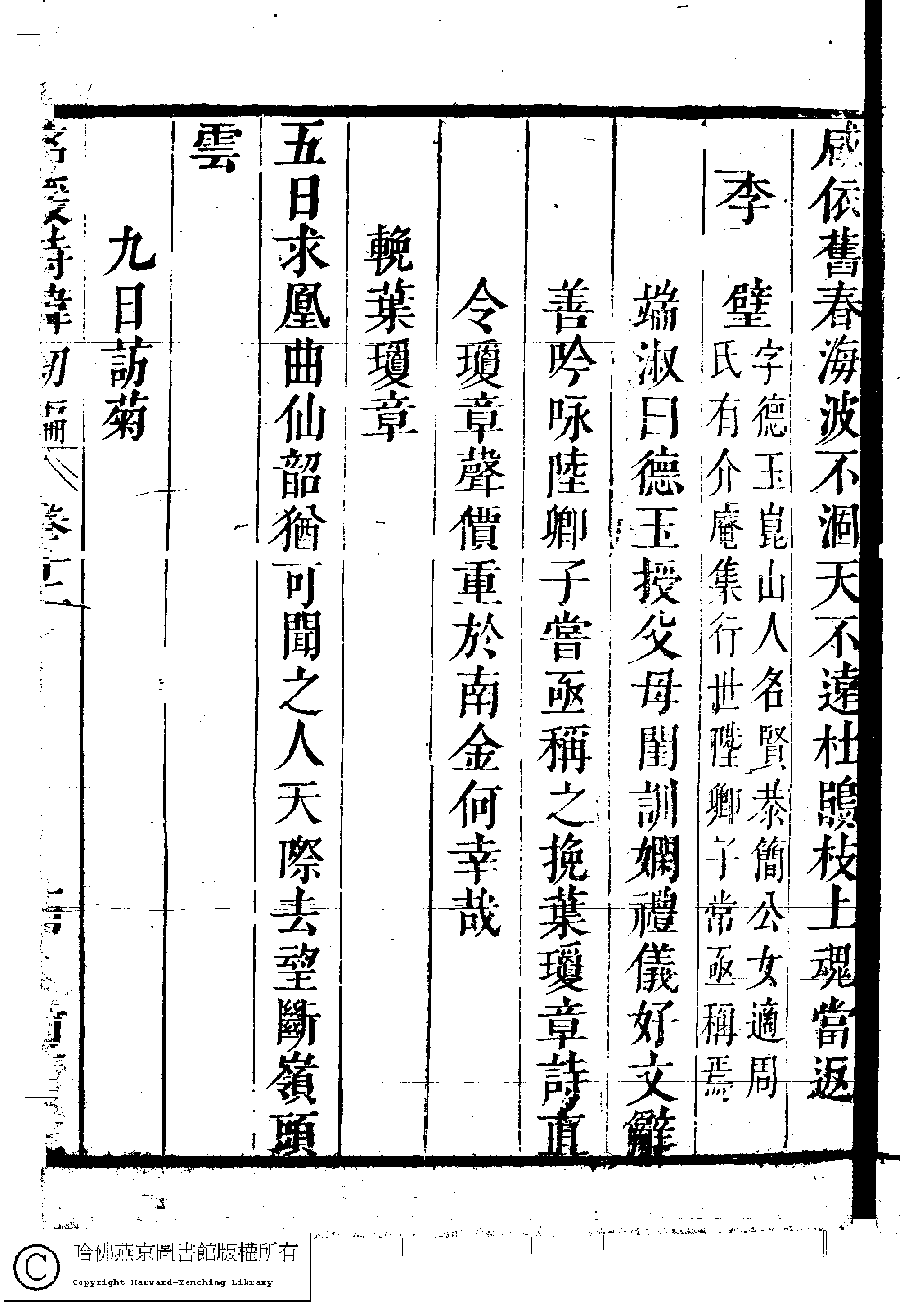 咸依舊春海波不涸天不遠杜鵑枝上魂當返
李
璧字德玉崑山人名賢恭簡公女適周
氏有介庵集行世陸卿子常亟稱焉
端淑曰德玉授父母閨訓嫻禮儀好文辭
善吟咏陸卿子嘗亟稱之挽葉瓊章詩直
令瓊章聲價重於南金何幸哉
輓葉瓊章
五日求凰曲仙韶猶可聞之人天際去望斷嶺頭
雲
九日訪菊
名媛詩緯初編 卷十一
哈佛燕京圖書館版權所有
Copyright Harvard-Yenching Library